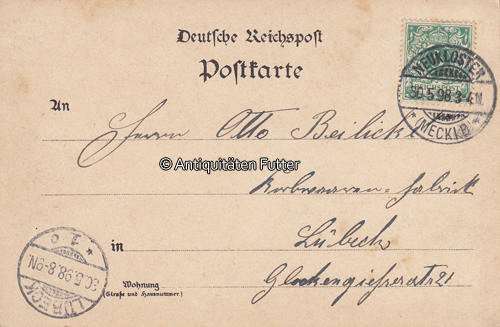 Deutsche Reichspost
Postkarte
NEUKLOSTER
30.5.98.3-4N.
(MECKLB.)
REICHSPOST
An
Herrn Otto Beilicke
© Antiquitäten Futter
Korbwaaren-Fabrick
in Lübeck
Glockengießerstr 21
Wohnung
(Straße und Hausnummer.)
LÜBECK
30.5.98.8-9N.